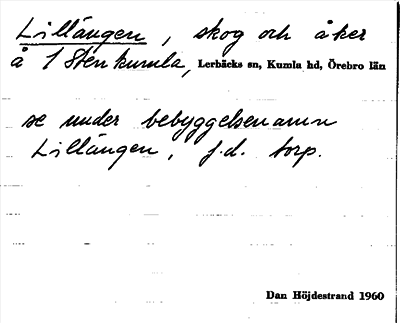 Lillängen, skog och åker
å 1 Stenkumla, Lerbäcks sn, Kumla hd, Örebro län
se under bebyggelsenamn
Lillängen, f.d. torp.
Dan Höjdestrand 1960